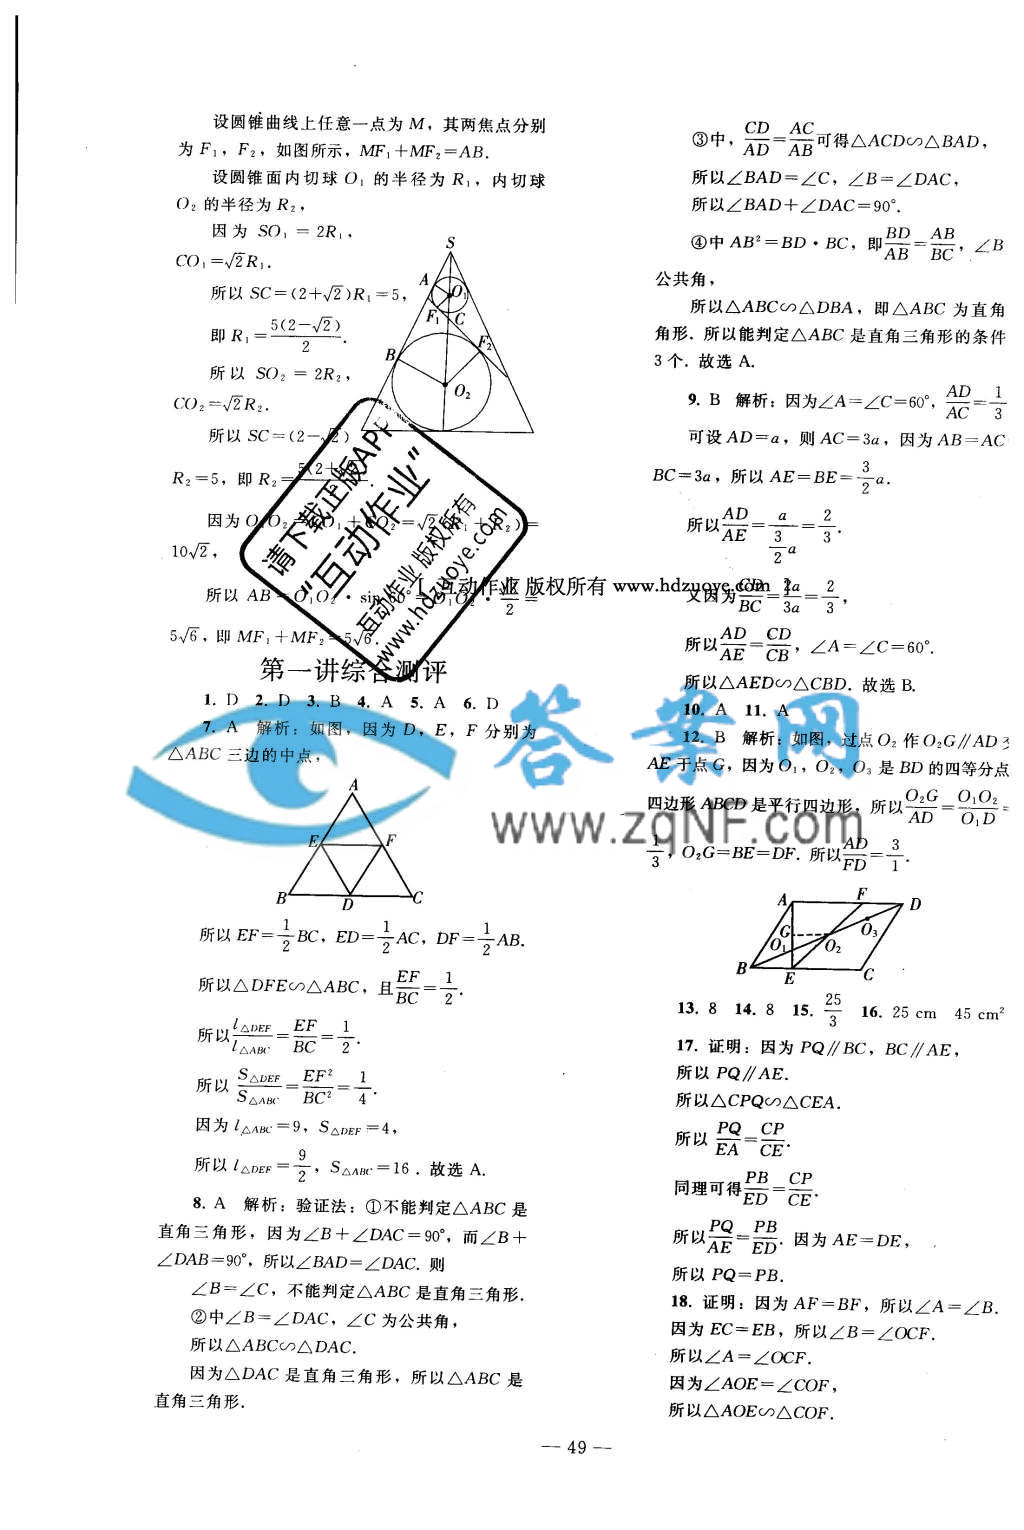 设圆锥曲线上任意一点为 M，其两焦点分别
为 F₁，F₂，如图所示，MF₁＋MF₂＝AB.
设圆锥面内切球 O₁ 的半径为 R₁，内切球
O₂ 的半径为 R₂，
因为 SO₁ ＝ 2R₁，
CO₁＝√2R₁.
所以 SC＝(2＋√2)R₁＝5，
即 R₁＝5(2－√2)/2.
所以 SO₂ ＝ 2R₂，
CO₂＝√2R₂.
所以 SC＝(2－√2)
R₂＝5，即 R₂＝
因为 O₁O₂
10√2，
所以 AB＝O₁O₂ · sin 60°＝O₁O₂ ·
5√6，即 MF₁＋MF₂＝5√6.
S
A
O₁
F₁
C
B
F₂
O₂
请下载正版APP
“互动作业”
互动作业 版权所有
www.hdzuoye.com
互动作业 版权所有 www.hdzuoye.com
第一讲综合测评
1. D 2. D 3. B 4. A 5. A 6. D
7. A 解析：如图，因为 D，E，F 分别为
△ABC 三边的中点，
A
E
F
B
D
C
所以 EF＝1/2 BC，ED＝1/2 AC，DF＝1/2 AB.
所以△DFE∽△ABC，且EF/BC＝1/2.
所以l△DEF/l△ABC＝EF/BC＝1/2.
所以 S△DEF/S△ABC＝EF²/BC²＝1/4.
因为 l△ABC＝9，S△DEF＝4，
所以 l△DEF＝9/2，S△ABC＝16．故选 A.
8. A 解析：验证法：①不能判定△ABC 是
直角三角形，因为∠B＋∠DAC＝90°，而∠B＋
∠DAB＝90°，所以∠BAD＝∠DAC. 则
∠B＝∠C，不能判定△ABC 是直角三角形.
②中∠B＝∠DAC，∠C 为公共角，
所以△ABC∽△DAC.
因为△DAC 是直角三角形，所以△ABC 是
直角三角形.
③中，CD/AD＝AC/AB可得△ACD∽△BAD，
所以∠BAD＝∠C，∠B＝∠DAC，
所以∠BAD＋∠DAC＝90°.
④中 AB²＝BD·BC，即BD/AB＝AB/BC，∠B
公共角，
所以△ABC∽△DBA，即△ABC 为直角
角形. 所以能判定△ABC 是直角三角形的条件
3 个. 故选 A.
9. B 解析：因为∠A＝∠C＝60°，AD/AC＝1/3
可设 AD＝a，则 AC＝3a，因为 AB＝AC
BC＝3a，所以 AE＝BE＝3/2 a.
所以AD/AE＝a/(3/2 a)＝2/3.
又因为CD/BC＝2a/3a＝2/3，
所以AD/AE＝CD/CB，∠A＝∠C＝60°.
所以△AED∽△CBD. 故选 B.
10. A 11. A
12. B 解析：如图，过点 O₂ 作 O₂G∥AD
AE 于点 G，因为 O₁，O₂，O₃ 是 BD 的四等分点
四边形 ABCD 是平行四边形，所以O₂G/AD＝O₁O₂/O₁D＝
1/3，O₂G＝BE＝DF. 所以AD/FD＝3/1.
答案网
www.zqNF.com
A
F
D
G
O₃
O₁
O₂
B
E
C
13. 8 14. 8 15. 25/3 16. 25 cm 45 cm²
17. 证明：因为 PQ∥BC，BC∥AE，
所以 PQ∥AE.
所以△CPQ∽△CEA.
所以 PQ/EA＝CP/CE.
同理可得PB/ED＝CP/CE.
所以PQ/AE＝PB/ED. 因为 AE＝DE，
所以 PQ＝PB.
18. 证明：因为 AF＝BF，所以∠A＝∠B.
因为 EC＝EB，所以∠B＝∠OCF.
所以∠A＝∠OCF.
因为∠AOE＝∠COF，
所以△AOE∽△COF.
— 49 —